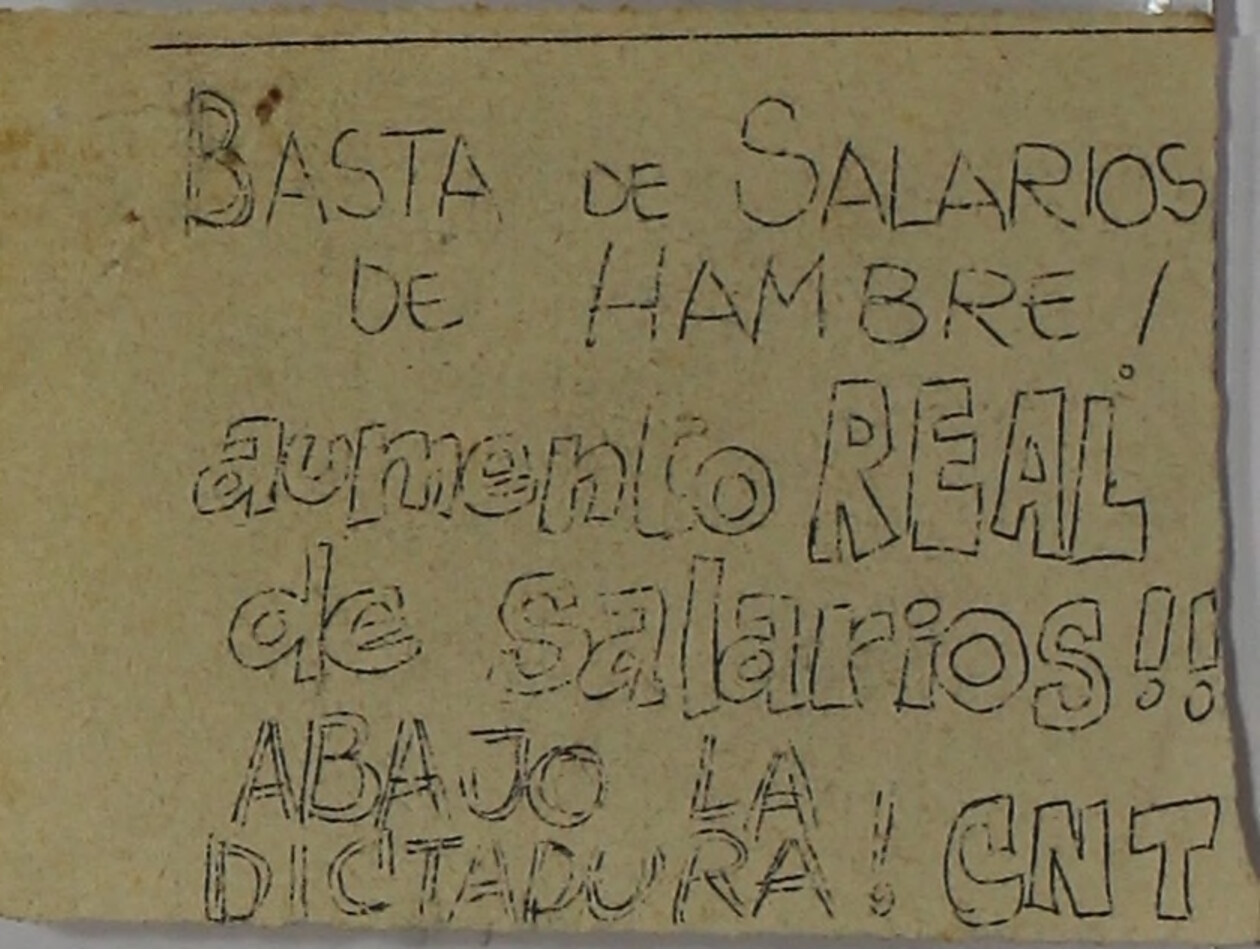 BASTA DE SALARIOS
DE HAMBRE!
aumento REAL
de salarios!!
ABAJO LA
DICTADURA! CNT